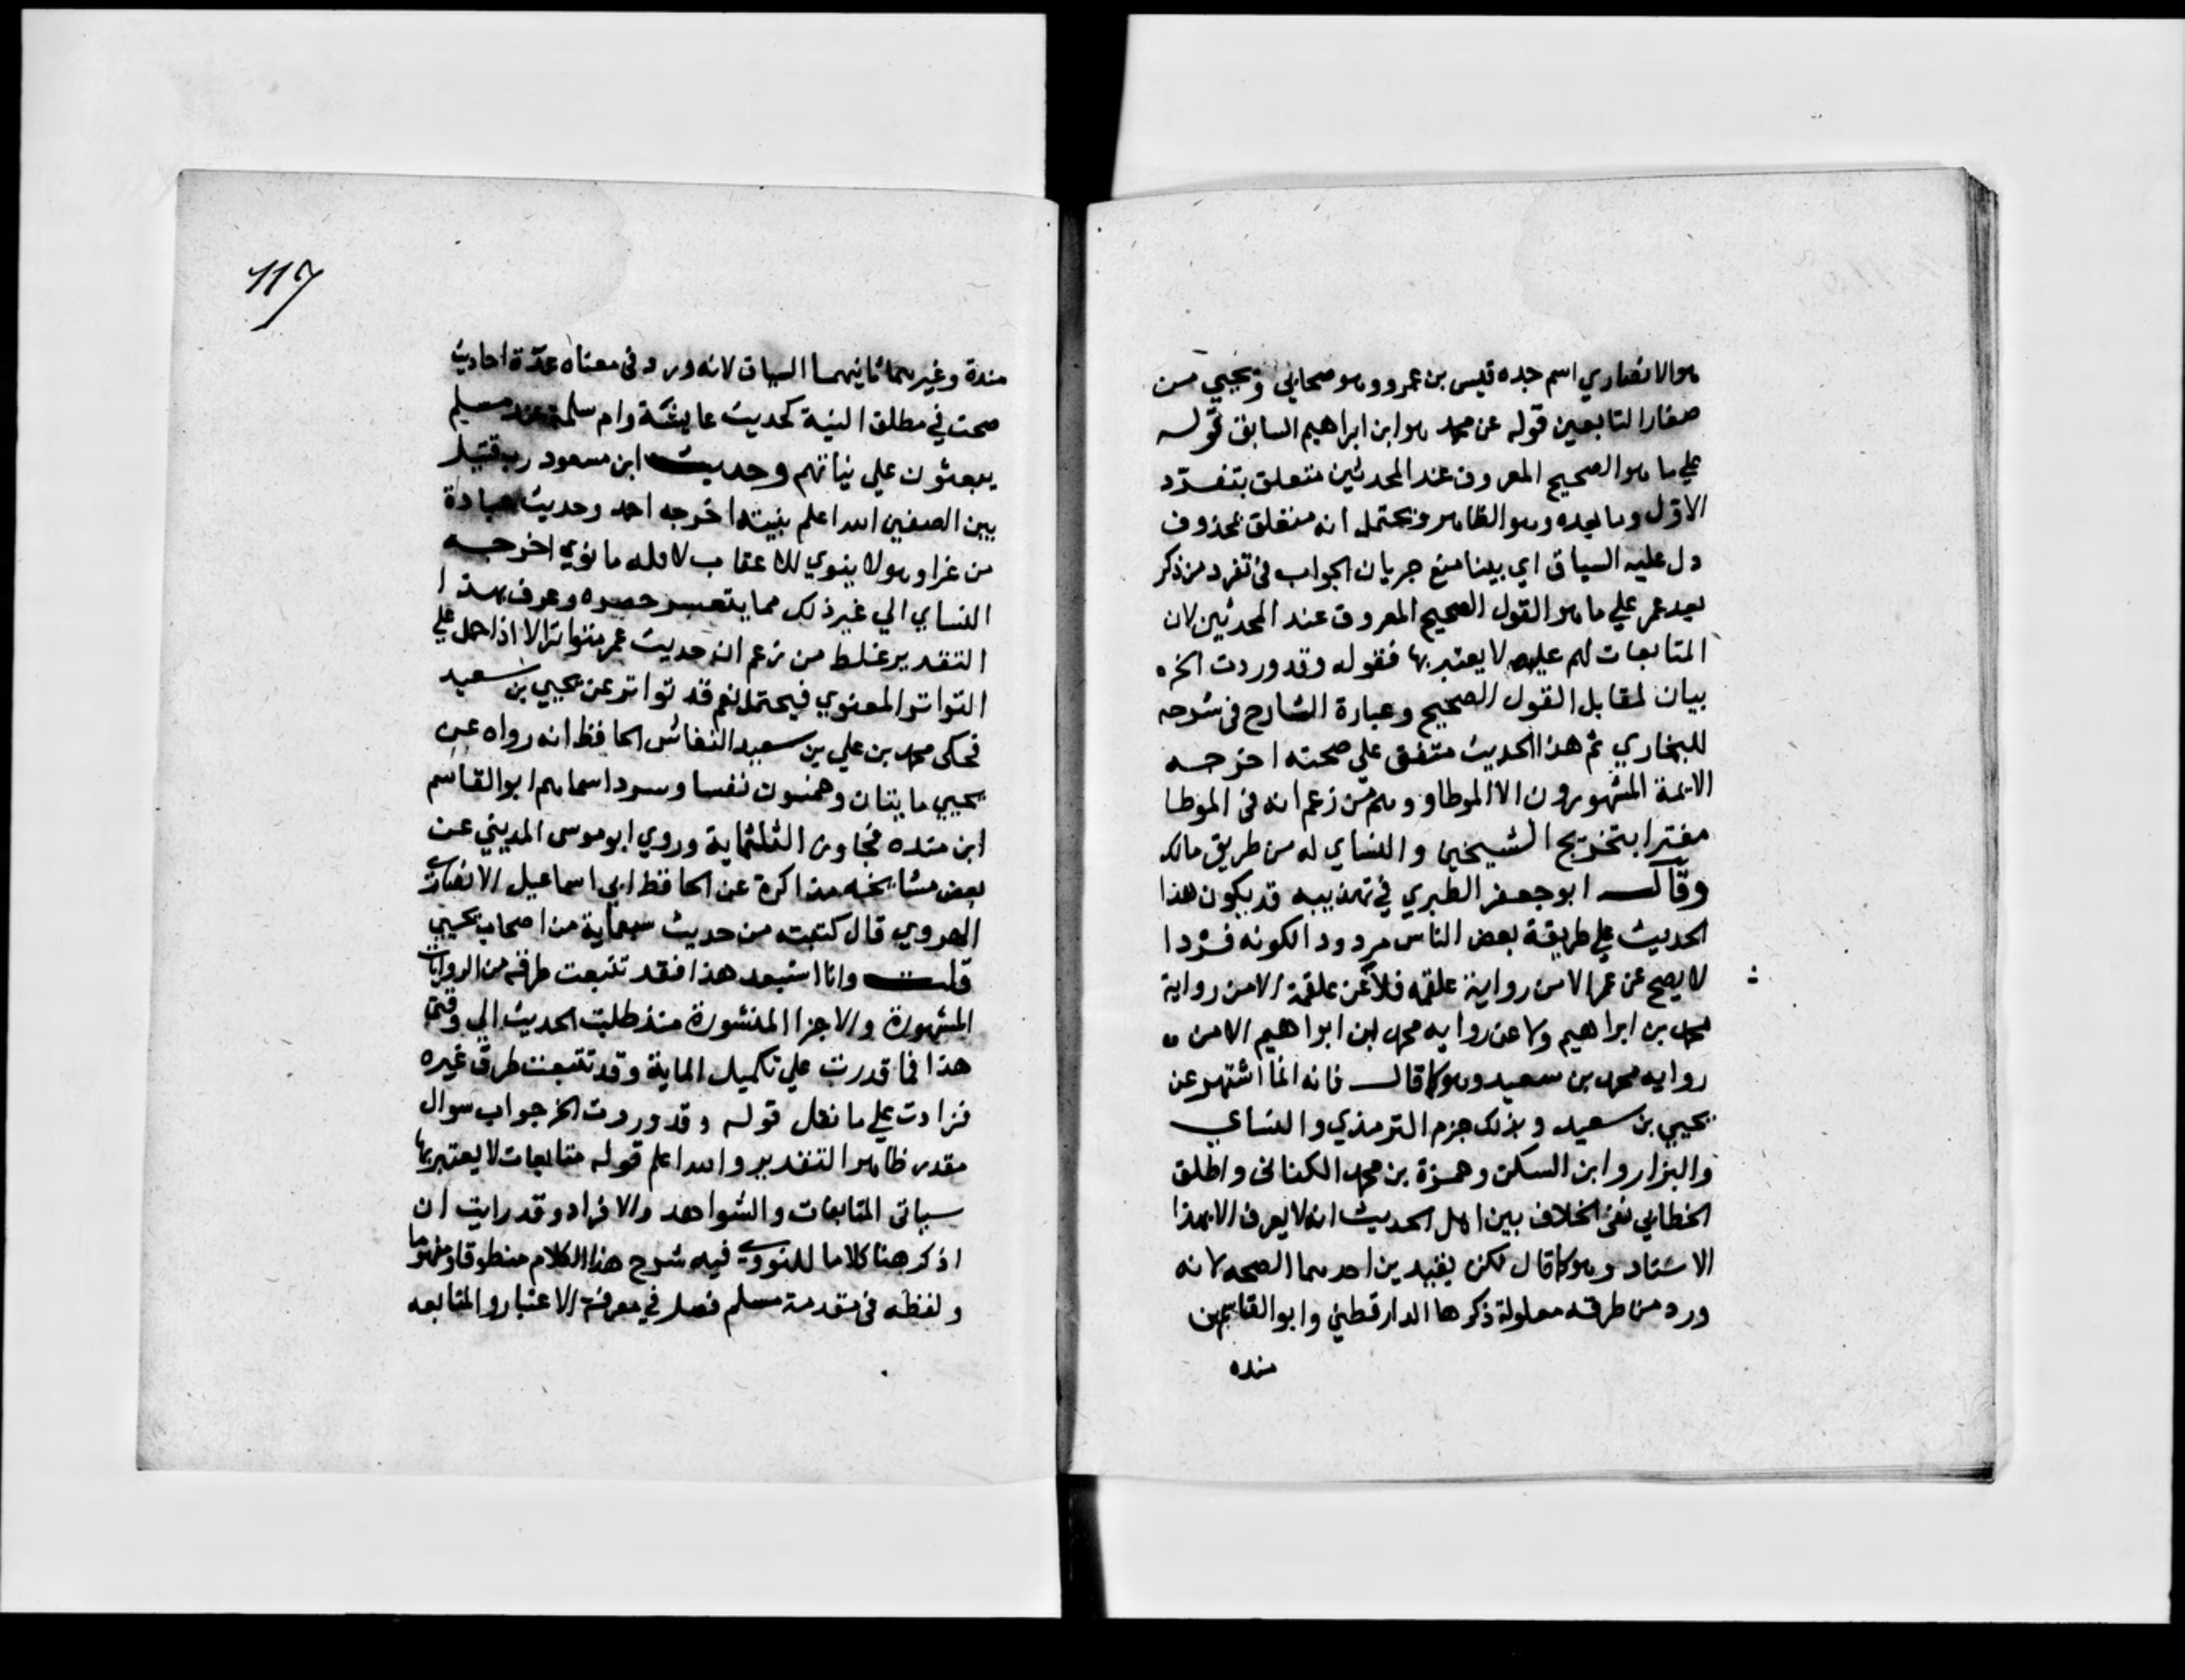 هو الانصاري اسم جده قيس بن عمرو وهو صحابي ويحيي من
صغار التابعين قوله عن محمد هو ابن ابراهيم السابق قوله
علي ما هو الصحيح المعروف عند المحدثين متعلق بتفرد
الاول وما بعده وهو الظاهر ويحتمل انه متعلق بمحذوف
دل عليه السياق اي بينا منع جريان الجواب في تفرد من ذكر
بعد عمر علي ما هو القول الصحيح المعروف عند المحدثين لان
المتابعات لهم عليه لا يعتبر بها فقوله وقد وردت الخ
بيان لمقابل القول الصحيح وعبارة الشارح في شرحه
للبخاري ثم هذا الحديث متفق علي صحته اخرجه
الايمة المشهورون الا الموطا ووهم من زعم انه في الموطا
مغترا بتخريج الشيخين والنساي له من طريق مالك
وقال ابو جعفر الطبري في تهذيبه قد يكون هذا
الحديث علي طريقة بعض الناس مردودا لكونه فردا
لا يصح عن عمر الا من رواية علقمه فلا عن علقمة الا من رواية
محمد بن ابراهيم ولا عن روايه محمد ابن ابراهيم الا من
روايه محمد بن سعيد وهو كما قال فانه انما اشتهر عن
يحيي بن سعيد وبذلك جزم الترمذي والنساي
والبزار وابن السكن وحمزة بن محمد الكناني واطلق
الخطابي نفي الخلاف بين اهل الحديث انه لا يعرف الا بهذا
الاسناد وهو كما قال لكن بقيدين احدهما الصحه لانه
ورد من طرقه معلولة ذكرها الدارقطني وابو القاسم بن
منده
117
مندة وغيرهما ثانيهما السياق لانه ورد في معناه عدة احاديث
صحت في مطلق النية كحديث عايشة وام سلمة عند مسلم
يبعثون علي نياتهم وحديث ابن مسعود رب قتيل
بين الصفين الله اعلم بنيته اخرجه احمد وحديث عبادة
من غزا وهو لا ينوي الا عقابلا فله ما نوي اخرجه
النساي الي غير ذلك مما يتعسر حصره وعرف بهذا
التقدير غلط من زعم ان حديث عمر متواتر الا اذا حمل علي
التواتر المعنوي فيحتمل نعم قد تواتر عن يحيي بن سعيد
فحكي محمد بن علي بن سعيد النقاش الحافظ انه رواه عن
يحيي مايتان وخمسون نفسا وسرد اسماهم ابو القاسم
ابن منده فجاوز الثلثماية وروي ابو موسى المديني عن
بعض مشايخه مذاكرة عن الحافظ ابي اسماعيل الانصاري
الهروي قال كتبته من حديث سبعماية من اصحاب يحيي
قلت وانا استبعد هذا فقد تتبعت طرقه من الروايات
المشهورة والاجزا المنثورة منذ طلبت الحديث الي وقتي
هذا فما قدرت علي تكميل الماية وقد تتبعت طرق غيره
فزادت علي ما نقل قوله وقد وردت الخ جواب سوال
مقدر ظاهر التقدير والله اعلم قوله متابعات لا يعتبر بها
سياتي المتابعات والشواهد والافراد وقد رايت ان
اذكر هنا كلاما للنووي فيه شرح هذا الكلام منطوقا ومفهوما
ولفظه في مقدمة مسلم فصل في معرفة الاعتبار والمتابعه